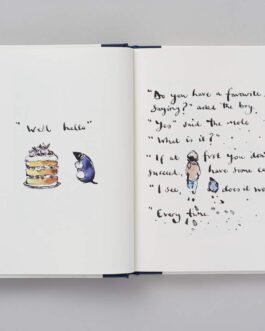 "Well hello"
"Do you have a favourite
saying?" asked the boy.
"Yes" said the mole
"What is it?"
"If at first you don't
succeed, have some ca
"I see, does it wo
"Every time"